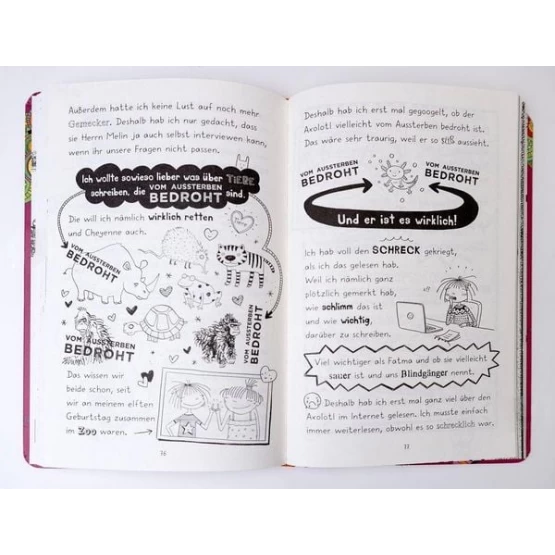 Außerdem hatte ich keine Lust auf noch mehr
Gemecker. Deshalb hab ich nur gedacht, dass
sie Herrn Melin ja auch selbst interviewen kann,
wenn ihr unsere Fragen nicht passen.
Ich wollte sowieso lieber was über TIERE
schreiben, die VOM AUSSTERBEN BEDROHT sind.
Die will ich nämlich wirklich retten
und Cheyenne auch.
VOM AUSSTERBEN
BEDROHT
VOM AUSSTERBEN
BEDROHT
VOM AUSSTERBEN
BEDROHT
Das wissen wir
beide schon, seit
wir an meinem elften
Geburtstag zusammen
im Zoo waren.
Deshalb hab ich erst mal gegoogelt, ob der
Axolotl vielleicht vom Aussterben bedroht ist.
Das wäre sehr traurig, weil er so süß aussieht.
VOM AUSSTERBEN
BEDROHT
VOM AUSSTERBEN
BEDROHT
Und er ist es wirklich!
Ich hab voll den SCHRECK gekriegt,
als ich das gelesen hab.
Weil ich nämlich ganz
plötzlich gemerkt hab,
wie schlimm das ist
und wie wichtig,
darüber zu schreiben.
Viel wichtiger als Fatma und ob sie vielleicht
sauer ist und uns Blindgänger nennt.
Deshalb hab ich erst mal ganz viel über den
Axolotl im Internet gelesen. Ich musste einfach
immer weiterlesen, obwohl es so schrecklich war.